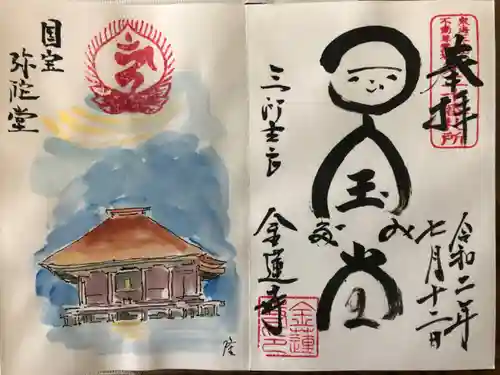 奉拝
宝
みだ
堂
令和二年
七月十二日
三河吉良
金蓮寺
金蓮
国宝
弥陀堂